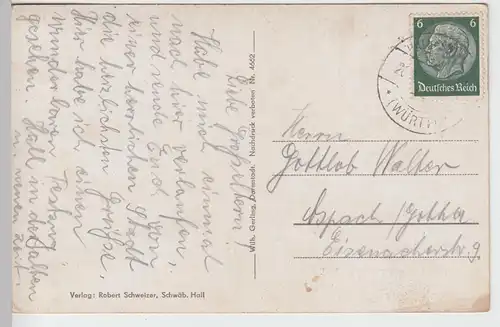 Liebe Großeltern!
Habe mich einmal
nach hier verlaufen,
und sende Euch von
einer herrlichen Stadt
die herzlichsten Grüße.
Hier habe ich einen
wunderbaren Festzug
gesehen. Hall in der alten
u. neuen Zeit.
Wilh. Gerling, Darmstadt. Nachdruck verboten Nr. 4662
Verlag: Robert Schweizer, Schwäb. Hall
6 6
Deutsches Reich
(WÜRTT
Herrn
Gottlob Walter
Aspach/Gotha
Eisenacherstr. 9